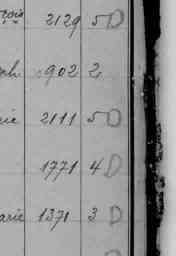 çois 2129 5 D
ph 902 2
rie 2111 5 D
1771 4 D
arie 1371 3 D